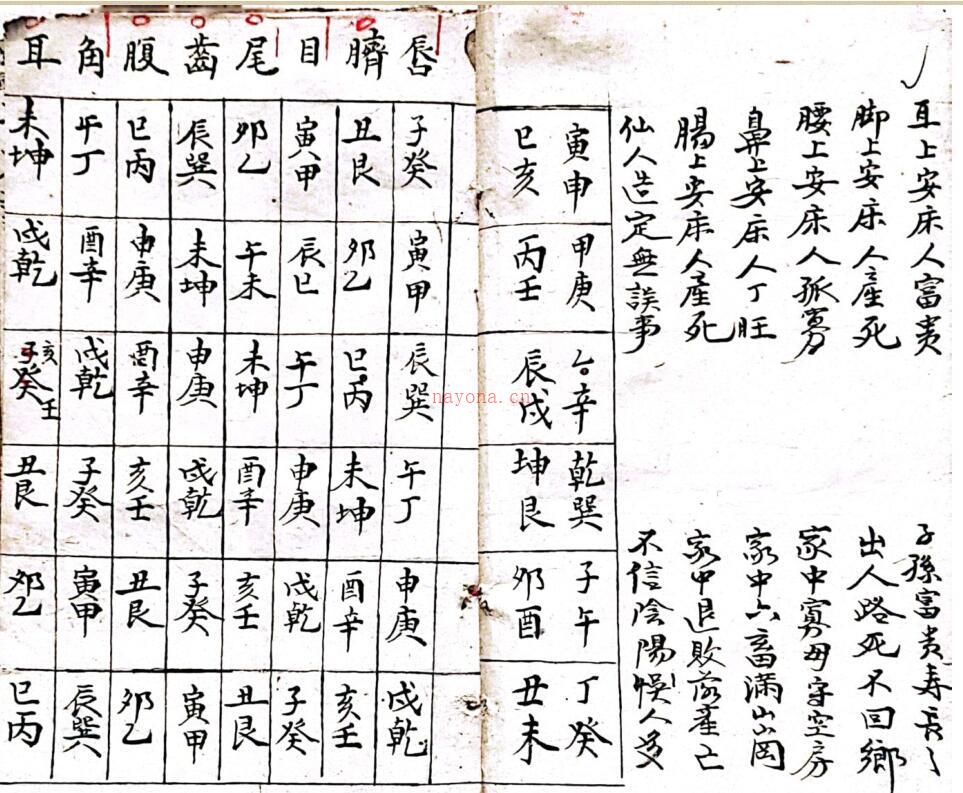 耳上安床人富贵
子孫富贵寿
脚上安床人産死
出人路死不回鄉
腰上安床人孤寡
家中寡母守空房
鼻上安床人丁旺
家中六畜滿山岡
腸上安床人産死
家中退敗産亡
仙人造定無誤事
不信陰陽悞人多
寅申 巳亥
甲庚 丙壬
辛 辰戌
乾巽 坤艮
子午 卯酉
丁癸 丑未
唇 臍 目 尾 齒 腹 角 耳
子癸 丑艮 寅甲 卯乙 辰巽 巳丙 午丁 未坤
寅甲 卯乙 辰巳 午未 未坤 申庚 酉辛 戌乾
辰巽 巳丙 午丁 未坤 申庚 酉辛 戌乾 亥子癸壬
午丁 未坤 申庚 酉辛 戌乾 亥壬 子癸 丑艮
申庚 酉辛 戌乾 亥壬 子癸 丑艮 寅甲 卯乙
戌乾 亥壬 子癸 丑艮 寅甲 卯乙 辰巽 巳丙
nayona.cn